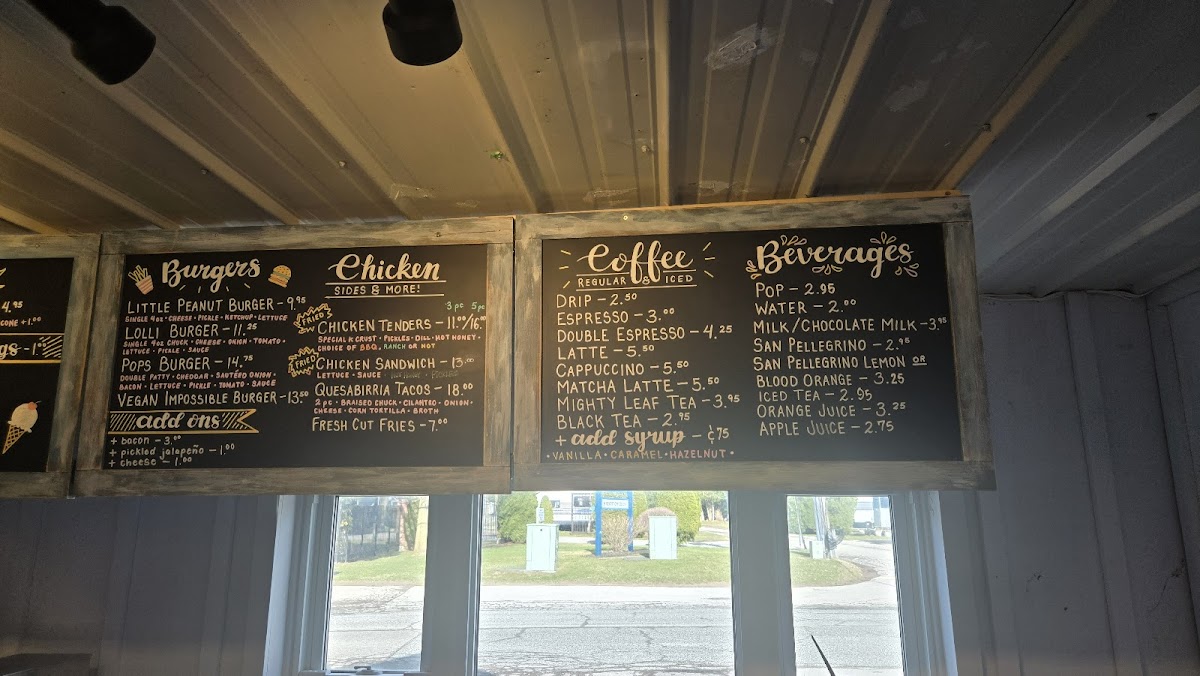 4.95
CONE +1.00
gs - 1.00
Burgers
LITTLE PEANUT BURGER - 9.95
SINGLE 4OZ • CHEESE • PICKLE • KETCHUP • LETTUCE
LOLLI BURGER - 11.25
SINGLE 4OZ CHUCK • CHEESE • ONION • TOMATO •
LETTUCE • PICKLE • SAUCE
POPS BURGER - 14.75
DOUBLE PATTY • CHEDDAR • SAUTÉED ONION •
BACON • LETTUCE • PICKLE • TOMATO • SAUCE
VEGAN IMPOSSIBLE BURGER - 13.50
add ons
+ bacon - 3.00
+ pickled jalapeño - 1.00
+ cheese - 1.00
Chicken
SIDES & MORE!
3 pc 5 pc
FRIED
CHICKEN TENDERS - 11.00/16.00
SPECIAL K CRUST • PICKLES • DILL • HOT HONEY •
CHOICE OF BBQ, RANCH OR HOT
FRIED
CHICKEN SANDWICH - 13.00
LETTUCE • SAUCE • PICKLE
QUESABIRRIA TACOS - 18.00
2 pc • BRAISED CHUCK • CILANTRO • ONION •
CHEESE • CORN TORTILLA • BROTH
FRESH CUT FRIES - 7.00
Coffee
REGULAR & ICED
DRIP - 2.50
ESPRESSO - 3.00
DOUBLE ESPRESSO - 4.25
LATTE - 5.50
CAPPUCCINO - 5.50
MATCHA LATTE - 5.50
MIGHTY LEAF TEA - 3.95
BLACK TEA - 2.95
+ add syrup - ¢75
• VANILLA • CARAMEL • HAZELNUT •
Beverages
POP - 2.95
WATER - 2.00
MILK/CHOCOLATE MILK - 3.95
SAN PELLEGRINO - 2.95
SAN PELLEGRINO LEMON OR
BLOOD ORANGE - 3.25
ICED TEA - 2.95
ORANGE JUICE - 3.25
APPLE JUICE - 2.75